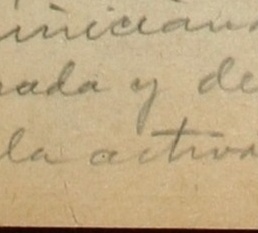 iniciand
rada y de
la activa